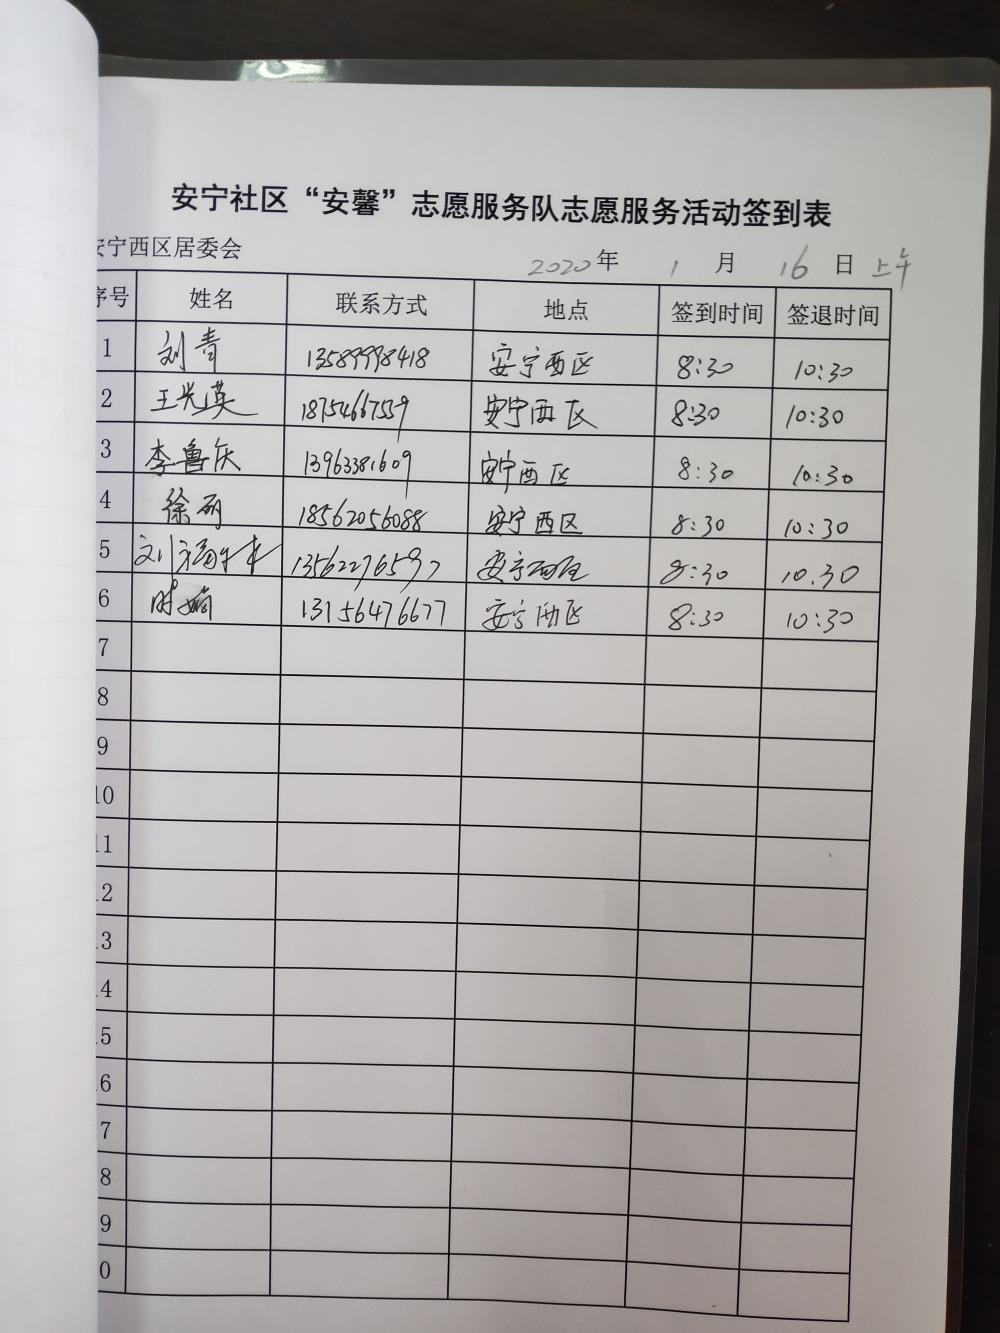 安宁社区“安馨”志愿服务队志愿服务活动签到表
安宁西区居委会 2020年 1 月 16 日 上午
序号 姓名 联系方式 地点 签到时间 签退时间
1 刘青 13589998418 安宁西区 8:30 10:30
2 王光英 18754667559 安宁西区 8:30 10:30
3 李鲁庆 13963381609 安宁西区 8:30 10:30
4 徐丽 18562056088 安宁西区 8:30 10:30
5 刘福 安宁西区 8:30 10.30
6 时 13156476677 安宁西区 8:30 10:30
7
8
9
10
11
12
13
14
15
16
7
8
9
0